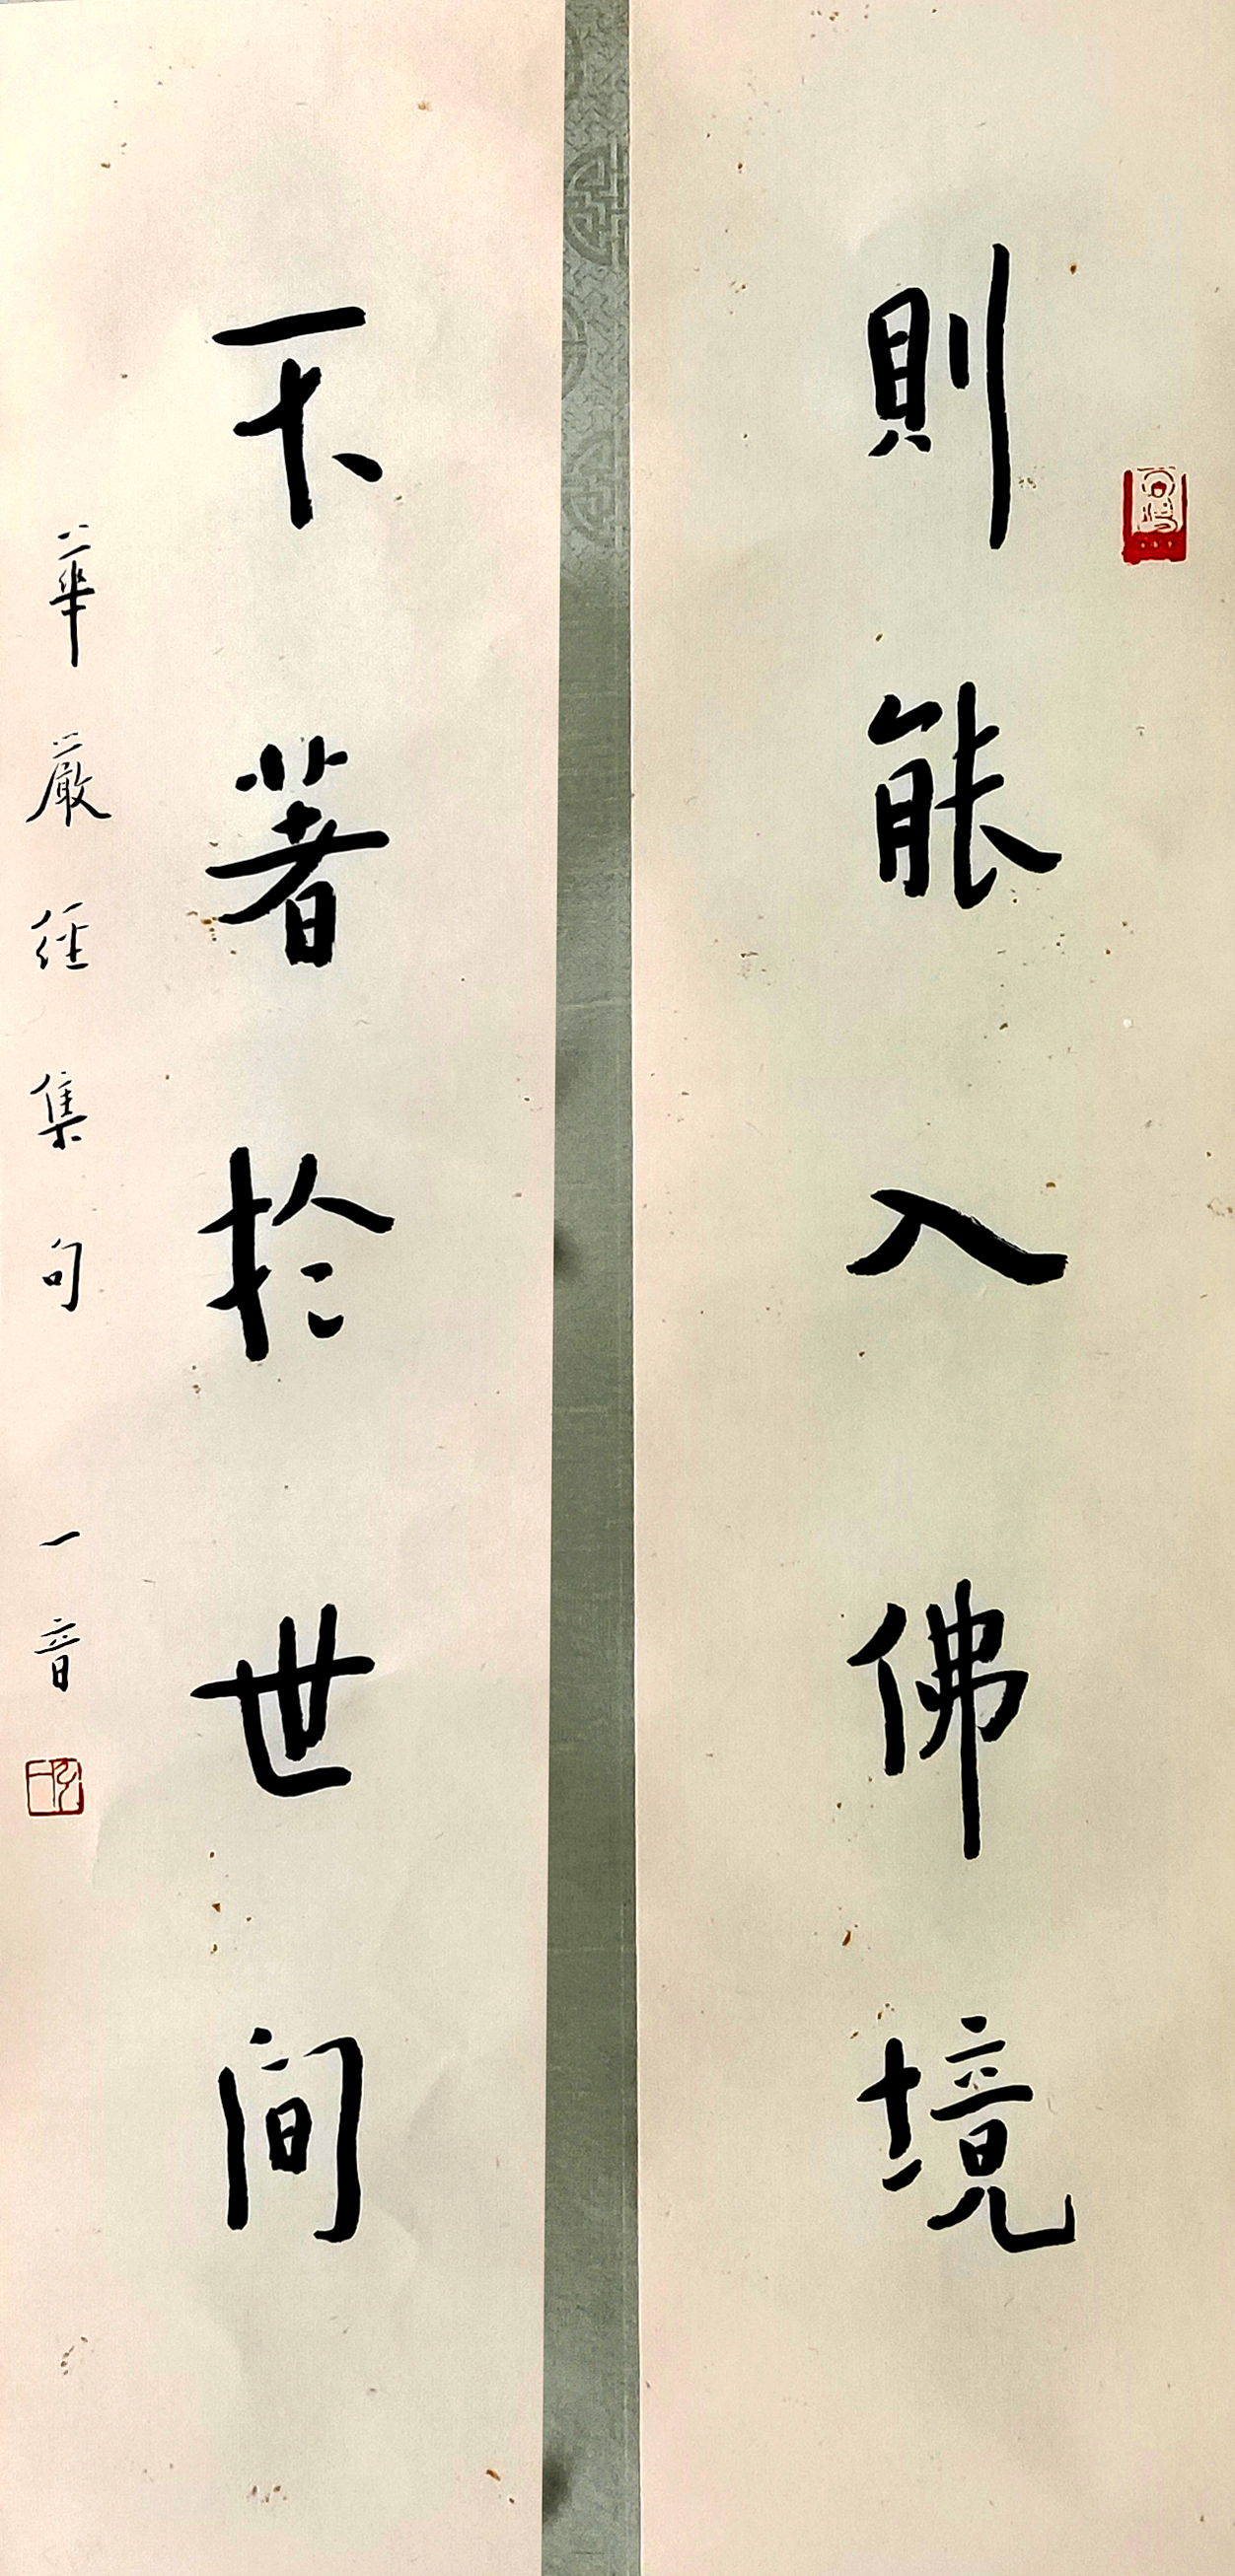 則能入佛境
不著於世間
華嚴經集句
一音